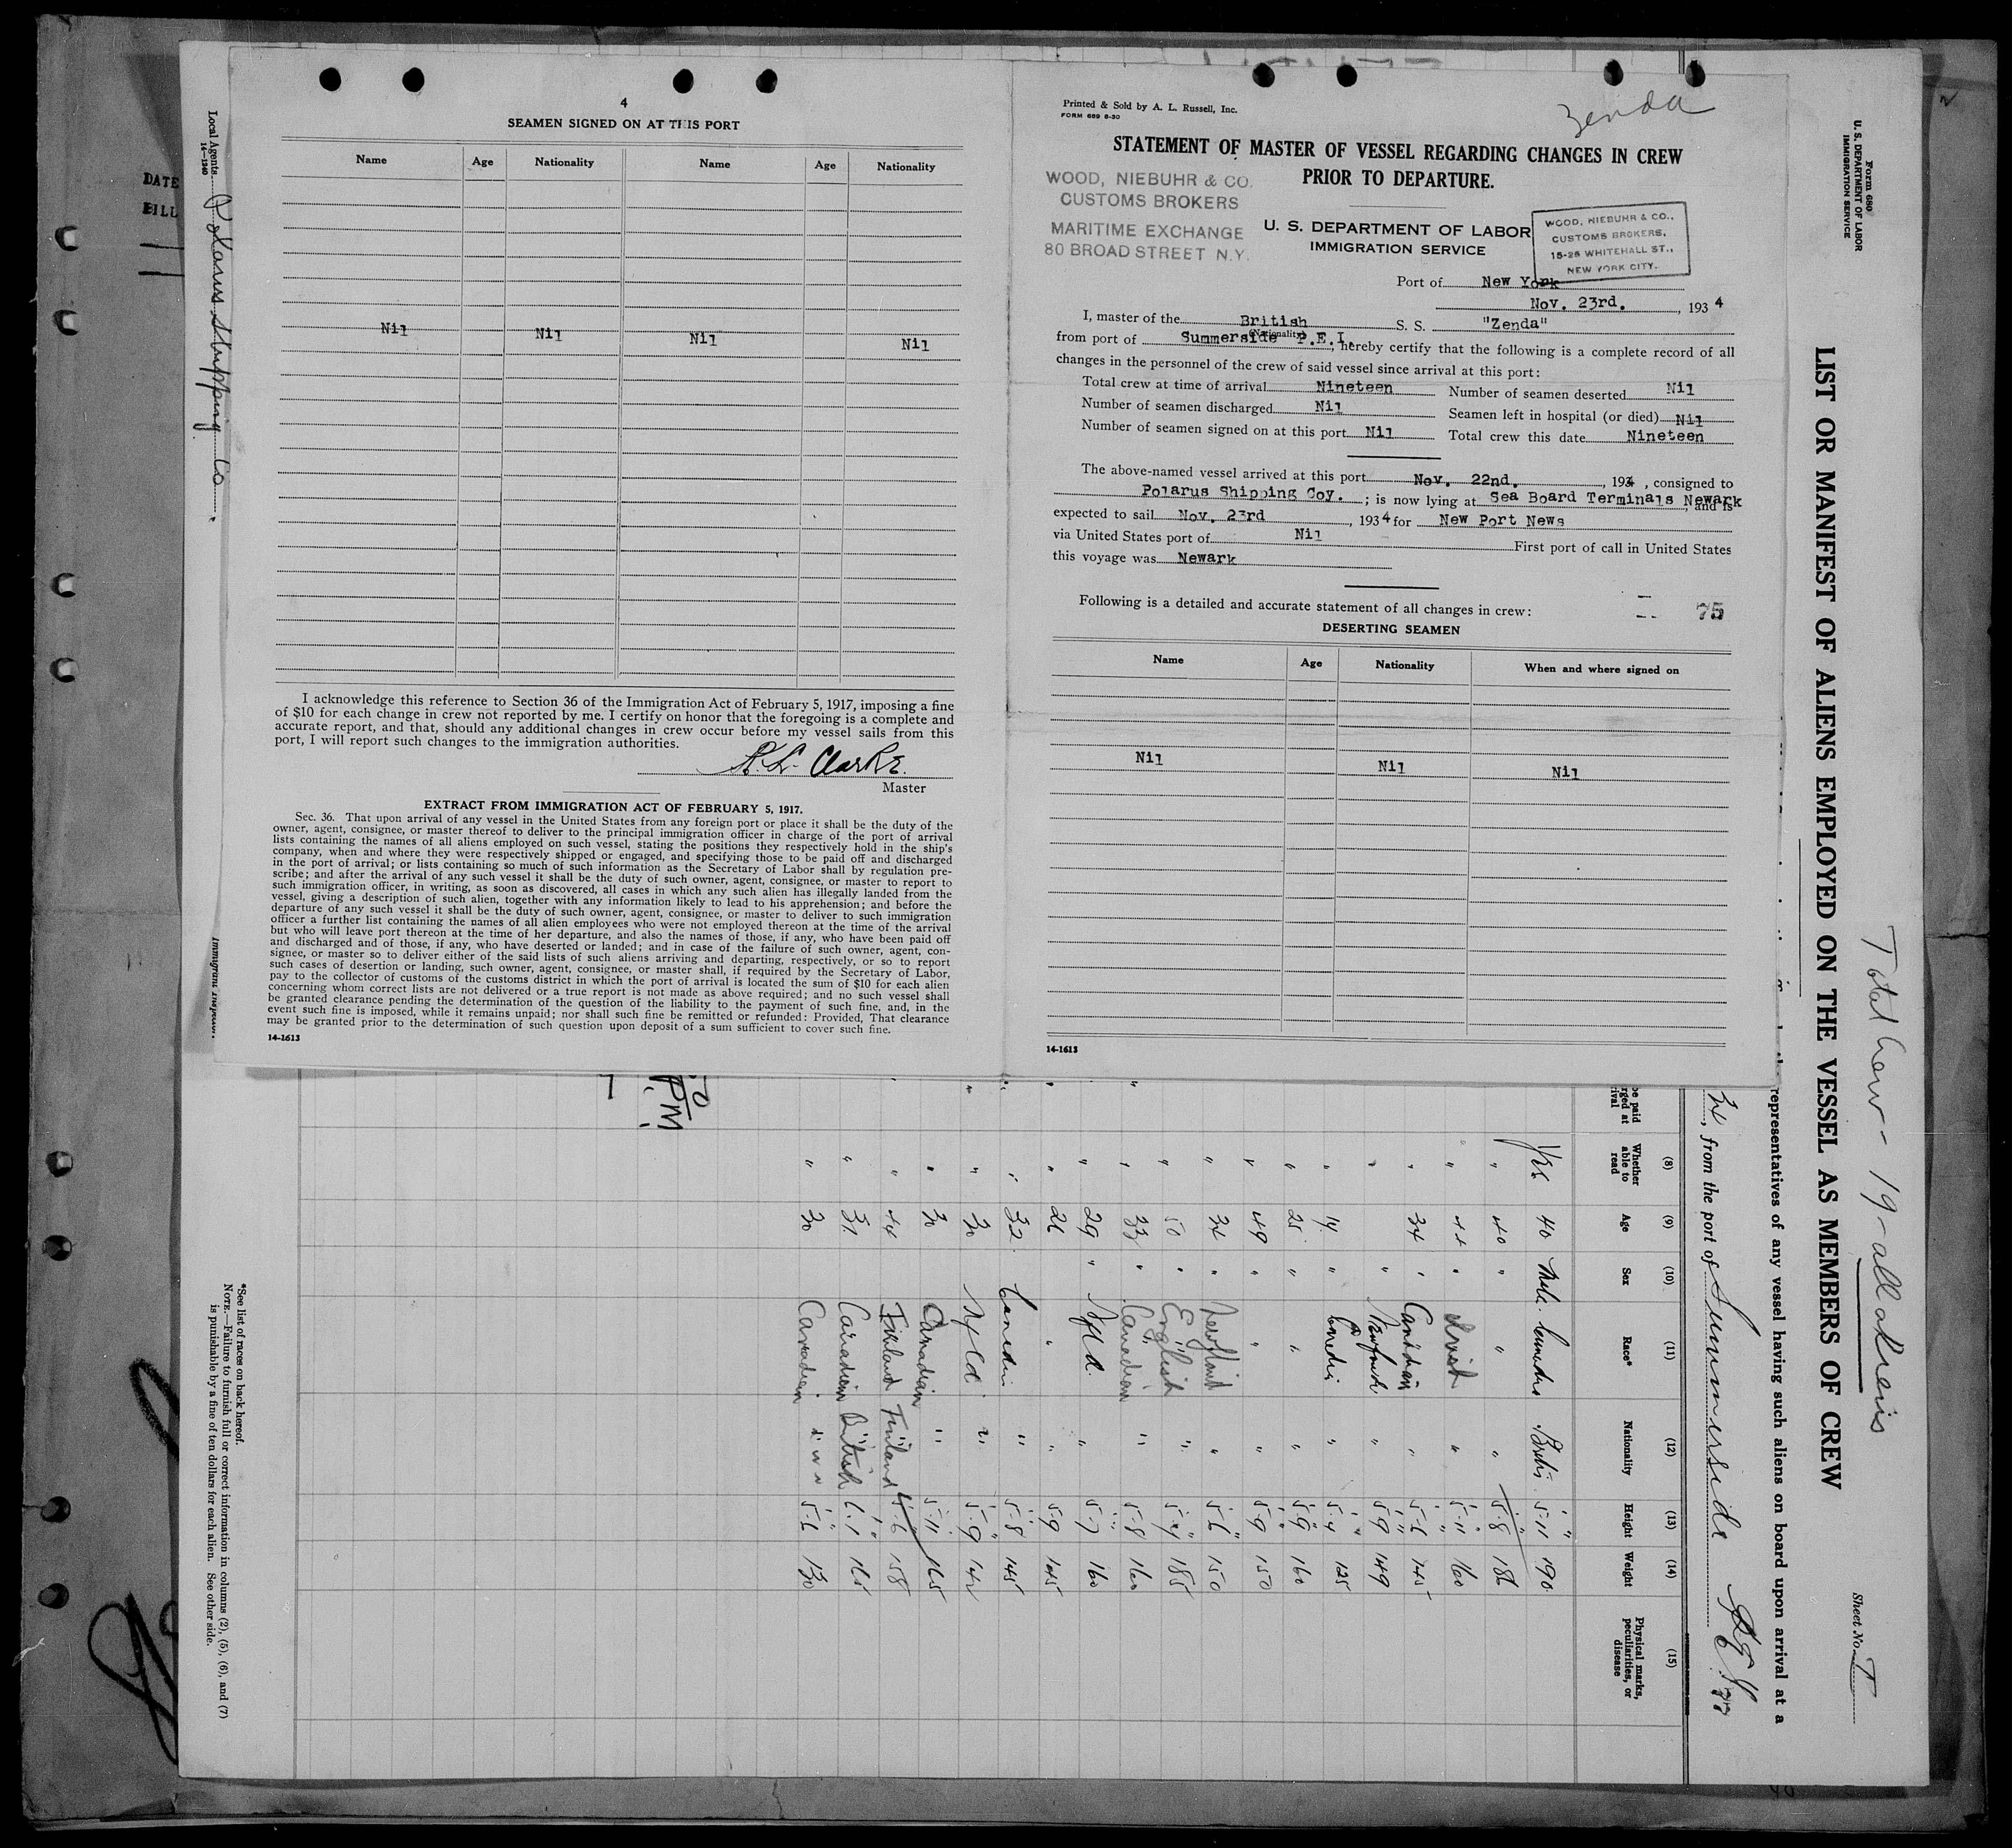 4
SEAMEN SIGNED ON AT THIS PORT
Name Age Nationality Name Age Nationality
Nil Nil Nil Nil
I acknowledge this reference to Section 36 of the Immigration Act of February 5, 1917, imposing a fine
of $10 for each change in crew not reported by me. I certify on honor that the foregoing is a complete and
accurate report, and that, should any additional changes in crew occur before my vessel sails from this
port, I will report such changes to the immigration authorities.
Clarke
Master
EXTRACT FROM IMMIGRATION ACT OF FEBRUARY 5, 1917.
Sec. 36. That upon arrival of any vessel in the United States from any foreign port or place it shall be the duty of the
owner, agent, consignee, or master thereof to deliver to the principal immigration officer in charge of the port of arrival
lists containing the names of all aliens employed on such vessel, stating the positions they respectively hold in the ship's
company, when and where they were respectively shipped or engaged, and specifying those to be paid off and discharged
in the port of arrival; or lists containing so much of such information as the Secretary of Labor shall by regulation pre-
scribe; and after the arrival of any such vessel it shall be the duty of such owner, agent, consignee, or master to report to
such immigration officer, in writing, as soon as discovered, all cases in which any such alien has illegally landed from the
vessel, giving a description of such alien, together with any information likely to lead to his apprehension; and before the
departure of any such vessel it shall be the duty of such owner, agent, consignee, or master to deliver to such immigration
officer a further list containing the names of all alien employees who were not employed thereon at the time of the arrival
but who will leave port thereon at the time of her departure, and also the names of those, if any, who have been paid off
and discharged and of those, if any, who have deserted or landed; and in case of the failure of such owner, agent, con-
signee, or master so to deliver either of the said lists of such aliens arriving and departing, respectively, or so to report
such cases of desertion or landing, such owner, agent, consignee, or master shall, if required by the Secretary of Labor,
pay to the collector of customs of the customs district in which the port of arrival is located the sum of $10 for each alien
concerning whom correct lists are not delivered or a true report is not made as above required; and no such vessel shall
be granted clearance pending the determination of the question of the liability to the payment of such fine, and, in the
event such fine is imposed, while it remains unpaid; nor shall such fine be remitted or refunded: Provided, That clearance
may be granted prior to the determination of such question upon deposit of a sum sufficient to cover such fine.
14-1613
Printed & Sold by A. L. Russell, Inc.
FORM 689 6-30
Zenda
STATEMENT OF MASTER OF VESSEL REGARDING CHANGES IN CREW
PRIOR TO DEPARTURE.
WOOD, NIEBUHR & CO.
CUSTOMS BROKERS
MARITIME EXCHANGE
80 BROAD STREET N.Y.
U. S. DEPARTMENT OF LABOR
IMMIGRATION SERVICE
WOOD, NIEBUHR & CO.,
CUSTOMS BROKERS,
15-25 WHITEHALL ST.,
NEW YORK CITY.
Port of New York
Nov. 23rd. , 1934
I, master of the British S. S. "Zenda"
(Nationality)
from port of Summerside P.E.I. , hereby certify that the following is a complete record of all
changes in the personnel of the crew of said vessel since arrival at this port:
Total crew at time of arrival Nineteen Number of seamen deserted Nil
Number of seamen discharged Nil Seamen left in hospital (or died) Nil
Number of seamen signed on at this port Nil Total crew this date Nineteen
The above-named vessel arrived at this port Nov. 22nd. , 1934 , consigned to
Polarus Shipping Coy. ; is now lying at Sea Board Terminals Newark ; and is
expected to sail Nov. 23rd , 1934 for New Port News
via United States port of Nil First port of call in United States
this voyage was Newark
Following is a detailed and accurate statement of all changes in crew:
75
DESERTING SEAMEN
Name Age Nationality When and where signed on
Nil Nil Nil
14-1613
Form 680
U. S. DEPARTMENT OF LABOR
IMMIGRATION SERVICE
Total Crew - 19 - all aliens
Sheet No.
LIST OR MANIFEST OF ALIENS EMPLOYED ON THE VESSEL AS MEMBERS OF CREW
representatives of any vessel having such aliens on board upon arrival at a
34, from the port of Summerside
(8) (9) (10) (11) (12) (13) (14) (15)
Whether able to read Age Sex Race* Nationality Height Weight Physical marks, peculiarities, or disease
Yes 40 Male 5-11 190
" 40 " " " 5-8 186
" 44 " " 5-11 160
" 34 " Canadian " 5-6 145
" " " 5-9 149
" 19 " " 5-4 125
" 25 " " " 5-9 160
" 49 " " " 5-9 150
" 34 " " 5-6 150
" 50 " English " 5-4 185
" 33 " Canadian " 5-8 160
" 29 " Nfld. " 5-7 160
" 26 " " 5-9 145
" 32 " 5-8 145
" 30 Nfld " 5-9 142
" 30 Canadian " 5-11 165
" 44 Finland Finland 5-6 158
" 31 Canadian British 6-1 165
" 30 Canadian " " 5-6 130
PM
Local Agents Polarus Shipping Co
14-1240
Immigrant Inspector.
*See list of races on back hereof.
NOTE.—Failure to furnish full or correct information in columns (2), (5), (6), and (7)
is punishable by a fine of ten dollars for each alien. See other side.
DATE